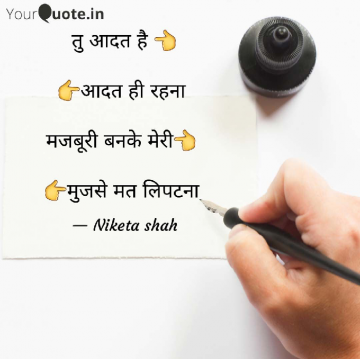 YourQuote.in
तु आदत है 👈
👉आदत ही रहना
मजबूरी बनके मेरी👈
👉मुजसे मत लिपटना
— Niketa shah